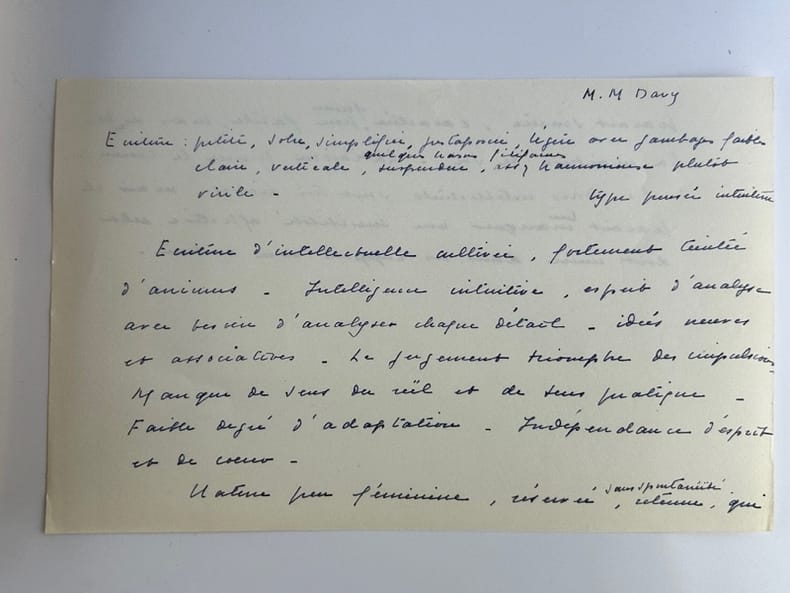 M. M Davy
Ecriture : petite, sobre, simplifiée, juxtaposée, légère avec jambages faibles
claire, verticale, quelques finales suspendues, assez harmonieuse plutôt
virile - type pensée intuition
Ecriture d'intellectuelle cultivée, fortement teintée
d'animus - Intelligence intuitive, esprit d'analyse
avec besoin d'analyser chaque détail - idées neuves
et associatives - Le jugement triomphe des impulsions -
Manque de sens du réel et de sens pratique -
Faible degré d'adaptation - Indépendance d'esprit
et de coeur -
Nature peu féminine, réservée, sans spontanéité, retenue, qui